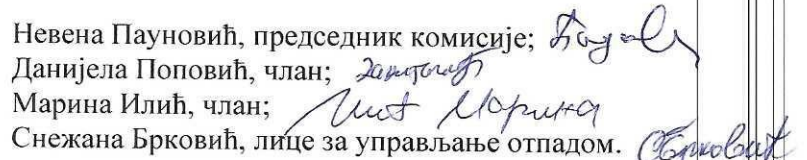 Невена Пауновић, председник комисије;
Данијела Поповић, члан;
Марина Илић, члан; Илић Марина
Снежана Брковић, лице за управљање отпадом. СБрковић